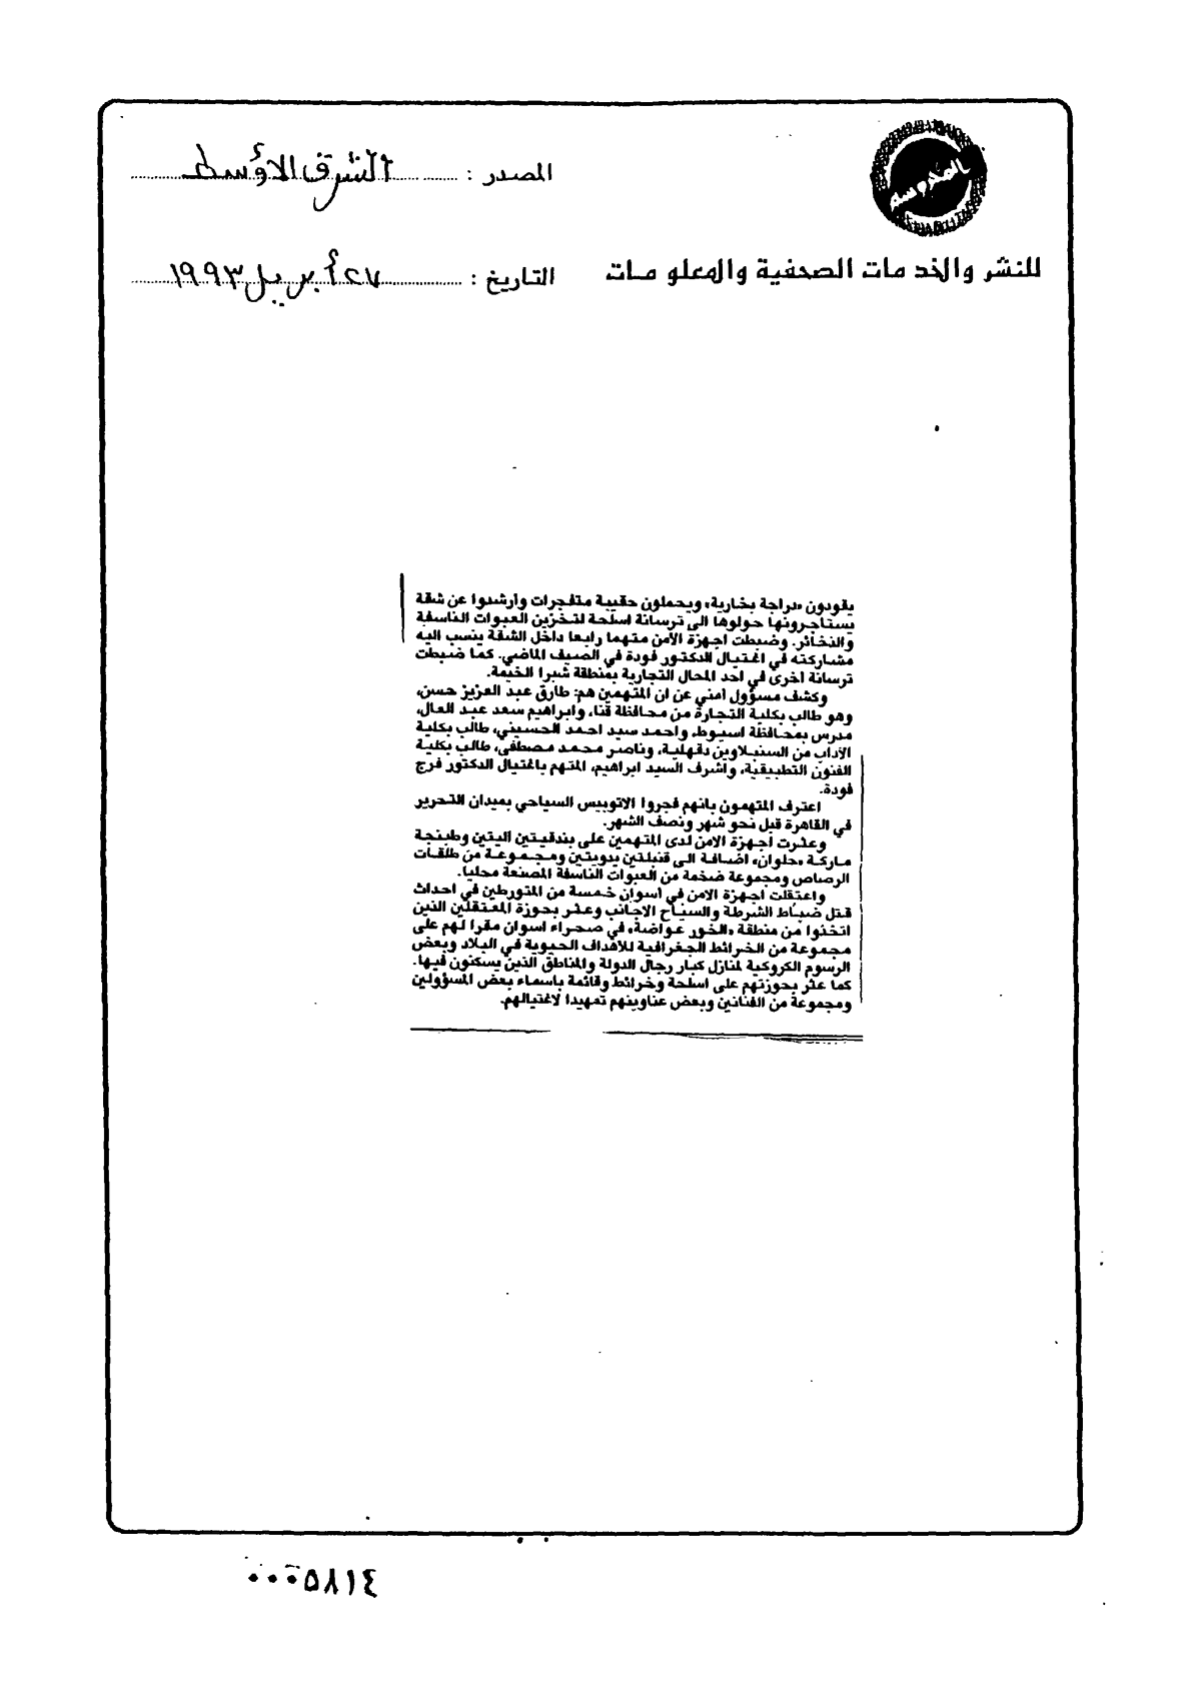 المصدر : الشرق الأوسط
للنشر والخدمات الصحفية والمعلومات
التاريخ : ٢٧ أبريل ١٩٩٣
يقودون «دراجة بخارية» ويحملون حقيبة متفجرات وارشدوا عن شقة
يستأجرونها حولوها الى ترسانة اسلحة لتخزين العبوات الناسفة
والذخائر. وضبطت اجهزة الأمن متهما رابعا داخل الشقة ينسب اليه
مشاركته في اغتيال الدكتور فودة في الصيف الماضي. كما ضبطت
ترسانة اخرى في احد المحال التجارية بمنطقة شبرا الخيمة.
وكشف مسؤول امني عن ان المتهمين هم: طارق عبد العزيز حسن،
وهو طالب بكلية التجارة من محافظة قنا، وابراهيم سعد عبد العال،
مدرس بمحافظة اسيوط، واحمد سيد احمد الحسيني، طالب بكلية
الآداب من السنبلاوين دقهلية، وناصر محمد مصطفى، طالب بكلية
الفنون التطبيقية، واشرف السيد ابراهيم، المتهم باغتيال الدكتور فرج
فودة.
اعترف المتهمون بانهم فجروا الاتوبيس السياحي بميدان التحرير
في القاهرة قبل نحو شهر ونصف الشهر.
وعثرت اجهزة الامن لدى المتهمين على بندقيتين اليتين وطبنجة
ماركة «حلوان» اضافة الى قنبلتين يدويتين ومجموعة من طلقات
الرصاص ومجموعة ضخمة من العبوات الناسفة المصنعة محليا.
واعتقلت اجهزة الامن في اسوان خمسة من المتورطين في احداث
قتل ضباط الشرطة والسياح الاجانب وعثر بحوزة المعتقلين الذين
اتخذوا من منطقة «الخور عواضة» في صحراء اسوان مقرا لهم على
مجموعة من الخرائط الجغرافية للأهداف الحيوية في البلاد وبعض
الرسوم الكروكية لمنازل كبار رجال الدولة والمناطق الذين يسكنون فيها.
كما عثر بحوزتهم على اسلحة وخرائط وقائمة باسماء بعض المسؤولين
ومجموعة من الفنانين وبعض عناوينهم تمهيدا لاغتيالهم.
٠٠٠٥٨١٤